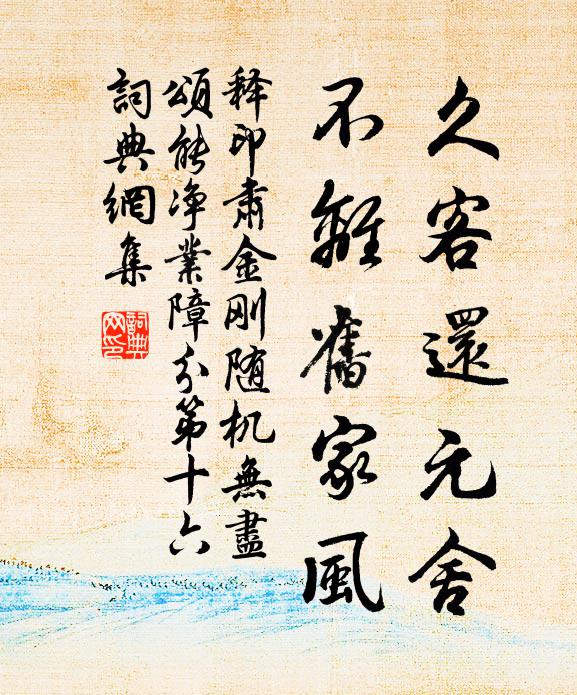 久客還元舍
不離舊家風
释印肃金刚随机無盡
頌能净業障分第十六
詞典網集
詞典網印